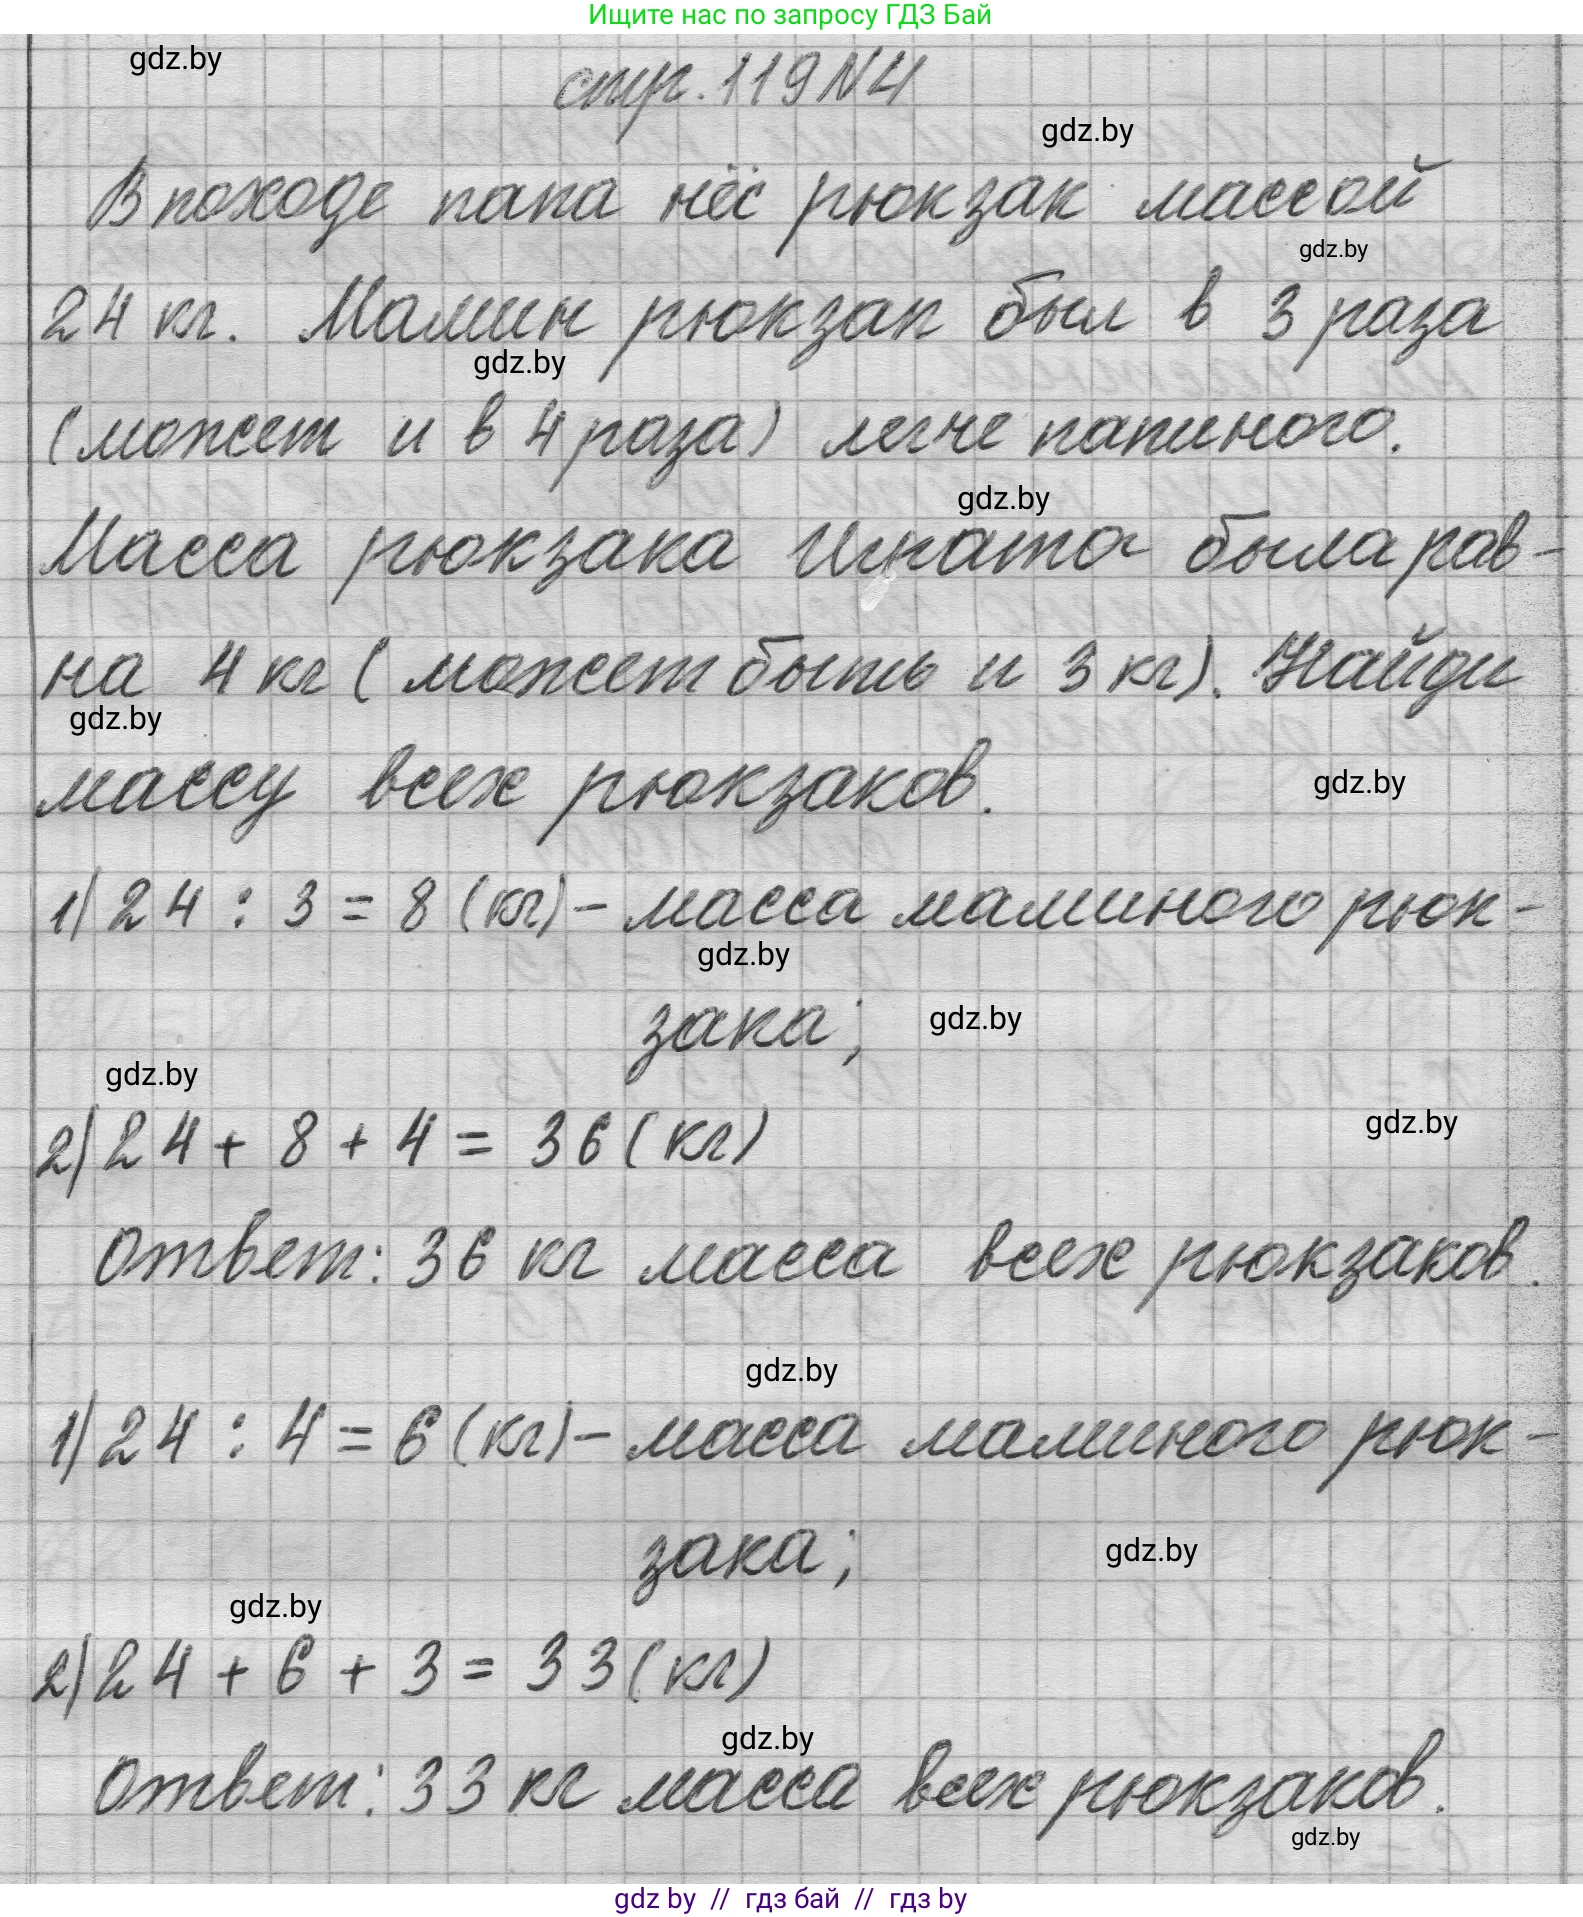 Ищите нас по запросу ГДЗ Бай
gdz.by
стр. 119 N 4
gdz.by
В походе папа нёс рюкзак массой
gdz.by
24 кг. Мамин рюкзак был в 3 раза
gdz.by
(может и в 4 раза) легче папиного.
gdz.by
Масса рюкзака Игната была рав-
на 4 кг (может быть и 3 кг). Найди
gdz.by
массу всех рюкзаков.
gdz.by
1) 24 : 3 = 8 (кг) - масса маминого рюк-
gdz.by
зака;
gdz.by
gdz.by
2) 24 + 8 + 4 = 36 (кг)
gdz.by
Ответ: 36 кг масса всех рюкзаков.
gdz.by
1) 24 : 4 = 6 (кг) - масса маминого рюк-
зака;
gdz.by
gdz.by
2) 24 + 6 + 3 = 33 (кг)
gdz.by
Ответ: 33 кг масса всех рюкзаков.
gdz.by
gdz by // гдз бай // гдз by